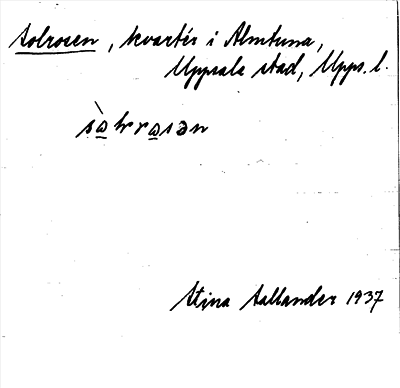 Solrosen, kvarter i Almtuna,
Uppsala stad, Upps. l.
sòlrosən
Stina Sallander 1937